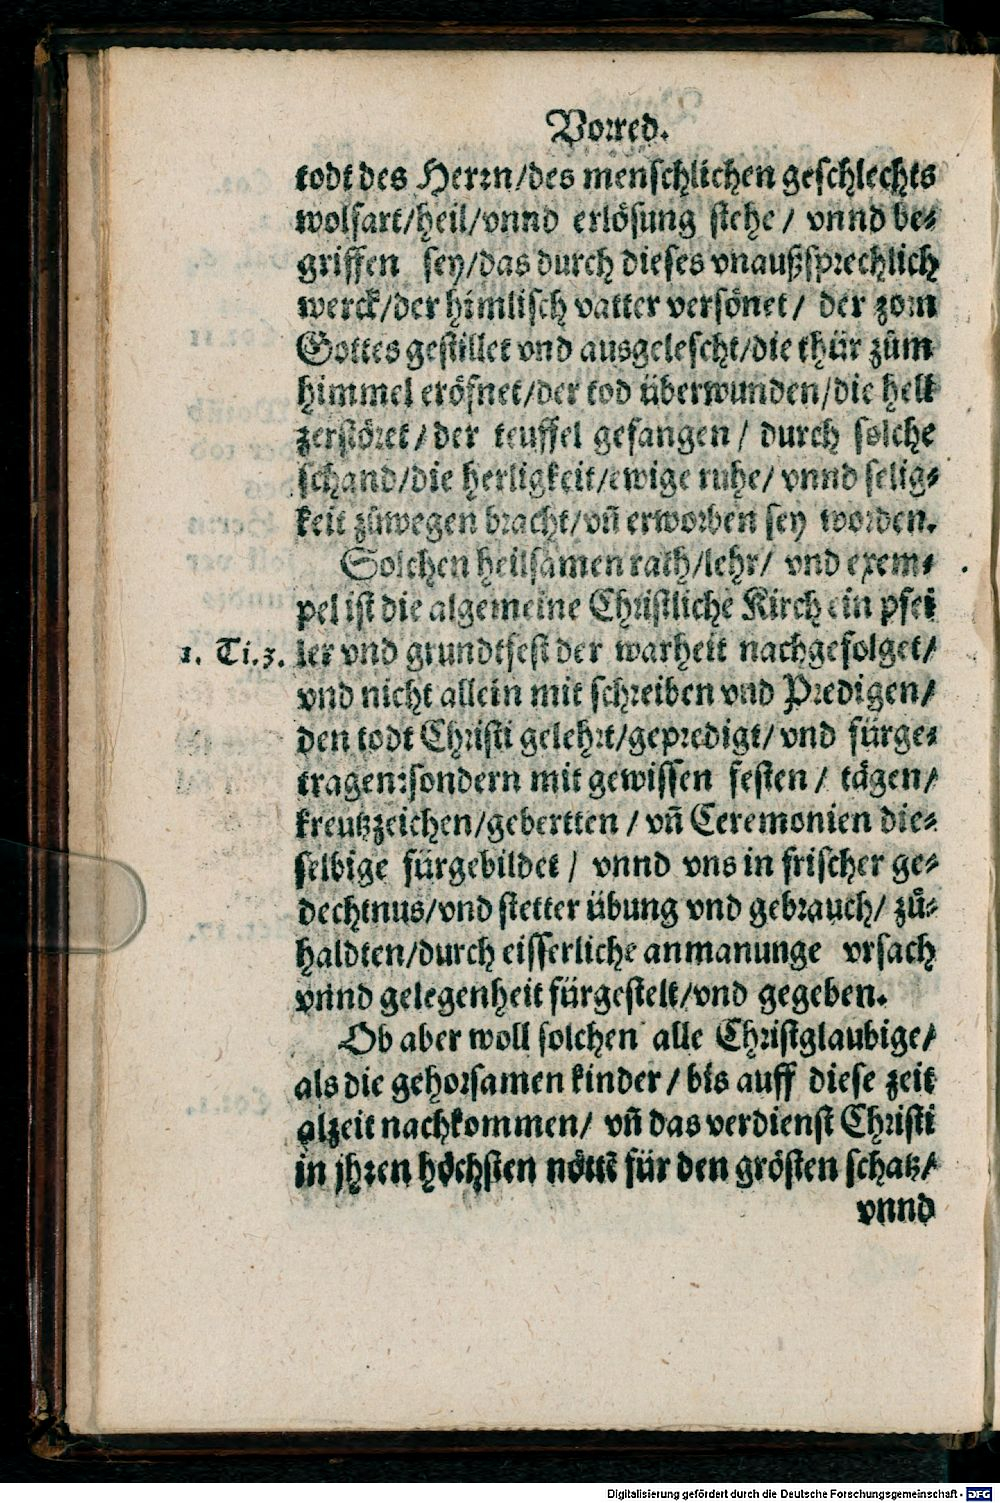 Vorred.
todt des Herrn/des menschlichen geschlechts
wolfart/heil/vnnd erlösung stehe/ vnnd be-
griffen sey/das durch dieses vnaußsprechlich
werck/der himlisch vatter versönet/ der zorn
Gottes gestillet vnd ausgelescht/die thür zům
himmel eröfnet/der tod überwunden/die hell
zerstöret/der teuffel gefangen/ durch solche
schand/die herligkeit/ewige ruhe/ vnnd selig-
keit zůwegen bracht/vñ erworben sey worden.
Solchen heilsamen rath/lehr/ vnd exem-
pel ist die algemeine Christliche Kirch ein pfei
1. Ti.3. ler vnd grundtfest der warheit nachgefolget/
vnd nicht allein mit schreiben vnd Predigen/
den todt Christi gelehrt/gepredigt/vnd fürge-
tragen:sondern mit gewissen festen/ tägen/
kreutzzeichen/gebertten/vñ Ceremonien die-
selbige fürgebildet/ vnnd vns in frischer ge-
dechtnus/vnd stetter übung vnd gebrauch/ zů-
haldten/durch eifferliche anmanunge vrsach
vnnd gelegenheit fürgestelt/vnd gegeben.
Ob aber woll solchen alle Christglaubige/
als die gehorsamen kinder/bis auff diese zeit
alzeit nachkommen/ vñ das verdienst Christi
in jhren höchsten nöttẽ für den grösten schatz/
vnnd
Digitalisierung gefördert durch die Deutsche Forschungsgemeinschaft - DFG